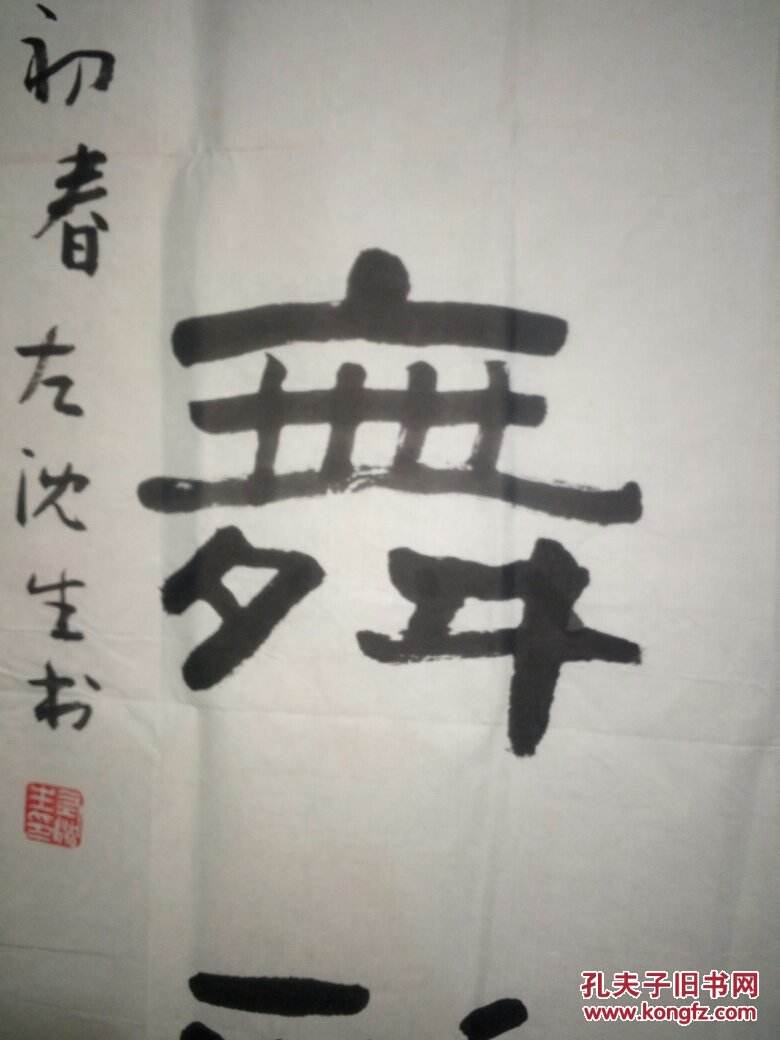 舞
初春左沈生书
孔夫子旧书网
www.kongfz.com